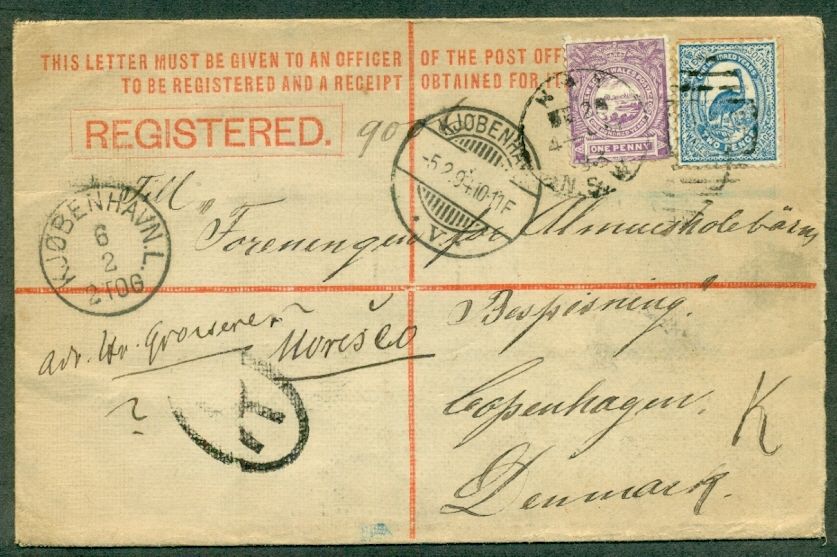 THIS LETTER MUST BE GIVEN TO AN OFFICER OF THE POST OFF
TO BE REGISTERED AND A RECEIPT OBTAINED FOR IT
REGISTERED.
900
ONE PENNY
TWO PENCE
KJØBENHAVN
-5.2.94.10-11F
V.
N.S.W
KJØBENHAVN.L.
6
2
2 TOG
Till
"Foreningen for Almueskolebärns
Bespisning."
adr. Hr. Grosserer
Moresco
?
Copenhagen.
Denmark.
K
T